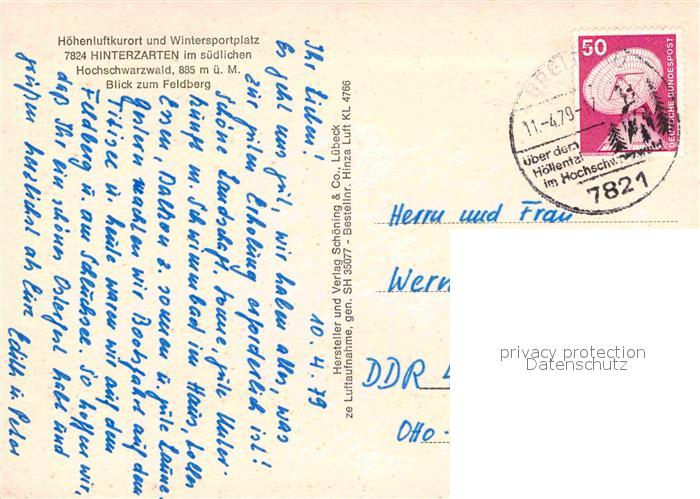 Höhenluftkurort und Wintersportplatz
7824 HINTERZARTEN im südlichen
Hochschwarzwald, 885 m ü. M.
Blick zum Feldberg
10.4.79
Ihr Lieben!
Es geht uns gut, wir haben alles, was
zur guten Erholung erforderlich ist!
Schöne Landschaft, Sonne, gute Unter-
kunft m. Schwimmbad im Haus, tolles
Essen, Balkon z. sonnen u. gute Laune.
Gestern machten wir Bootsfahrt auf dem
Titisee u. heute waren wir auf dem
Feldberg u. am Schluchsee. So hoffen wir,
daß Ihr ein schönes Osterfest habt und
grüßen herzlichst als Eure Edith u. Peter
Hersteller und Verlag Schöning & Co., Lübeck
ze Luftaufnahme, gen. SH 35077 - Bestellnr. Hinza Luft KL 4766
50
DEUTSCHE BUNDESPOST
11.-4.79
über dem
Höllental
im Hochschwarzwald
7821
Herrn und Frau
Wern
DDR
Otto-
privacy protection
Datenschutz